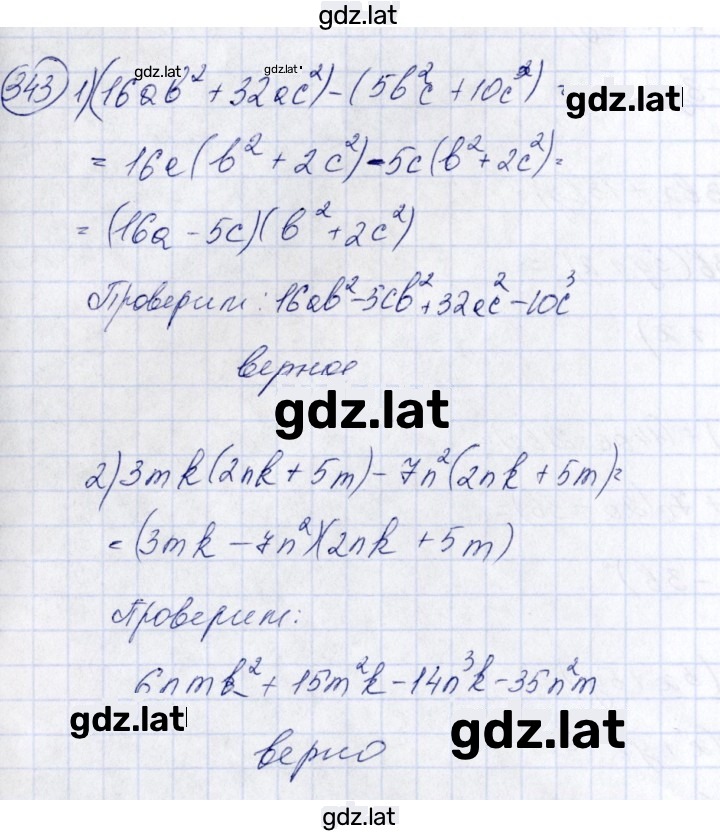 gdz.lat
343 1) (16ab² + 32ac²) - (5b²c + 10c³) =
gdz.lat
gdz.lat
gdz.lat
= 16a(b² + 2c²) - 5c(b² + 2c²) =
= (16a - 5c)(b² + 2c²)
Проверим: 16ab² - 5cb² + 32ac² - 10c³
верное
gdz.lat
2) 3mk(2nk + 5m) - 7n²(2nk + 5m) =
= (3mk - 7n²)(2nk + 5m)
Проверим:
6nmk² + 15m²k - 14n³k - 35n²m
gdz.lat
gdz.lat
верно
gdz.lat